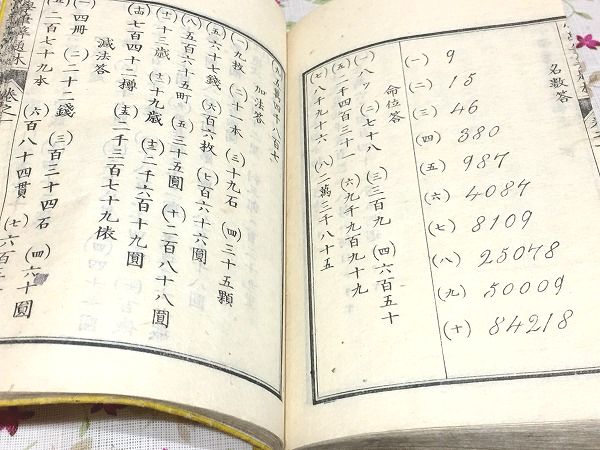 名數答
(一) 9
(二) 15
(三) 46
(四) 380
(五) 987
(六) 4087
(七) 8109
(八) 25078
(九) 50009
(十) 84218
命位答
(一) 八ツ (二) 七十八 (三) 三百九 (四) 六百五十
(五) 二千四百三十一 (六) 九千九百九十九
(七) 八千九十六 (八) 二萬三千八十五
加法答
(一) 九枚 (二) 二十一本 (三) 十九石 (四) 三十五顆
(五) 六十七錢 (六) 百六枚 (七) 百六十六圓
(八) 五百六十五町 (五) 三十五圓 (十) 二百八十八圓
(十一) 十三歲 (十二) 十九歲 (十三) 二千六百十九圓
(十四) 七百四十二樽 (十五) 二千三百七十九俵
減法答
(一) 四冊 (二) 二十二錢 (三) 百三十四石 (四) 六十圓
(五) 二百七十九本 (六) 百八十四貫 (七)
卷之一